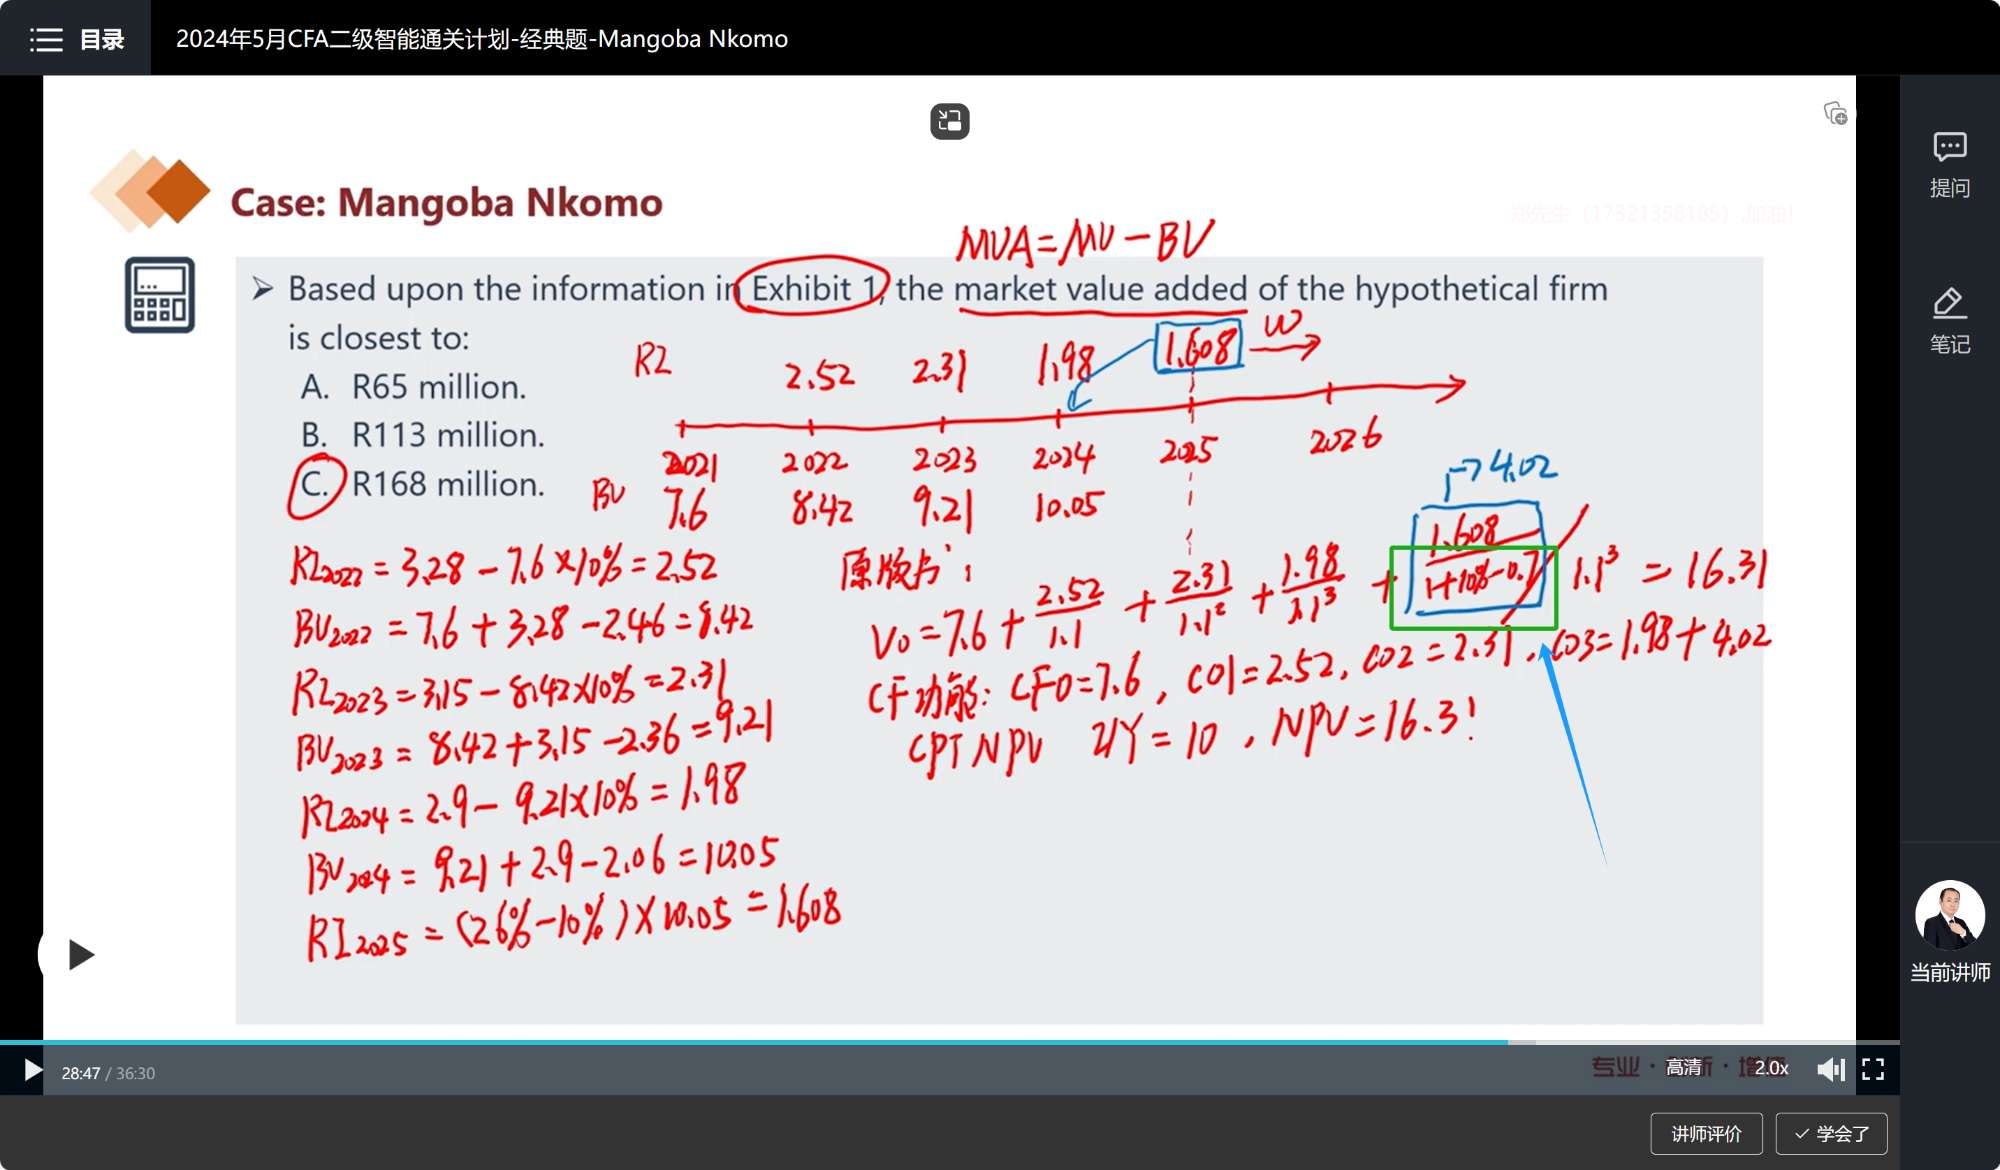 目录
2024年5月CFA二级智能通关计划-经典题-Mangoba Nkomo
提问
笔记
当前讲师
Case: Mangoba Nkomo
MVA=MV-BV
➢ Based upon the information in Exhibit 1, the market value added of the hypothetical firm
is closest to:
A. R65 million.
B. R113 million.
C. R168 million.
RI 2.52 2.31 1.98 1.608 W
2021 2022 2023 2024 2025 2026
BV 7.6 8.42 9.21 10.05
→4.02
RI2022 = 3.28 - 7.6×10% = 2.52
BV2022 = 7.6 + 3.28 - 2.46 = 8.42
RI2023 = 3.15 - 8.42×10% = 2.31
BV2023 = 8.42 + 3.15 - 2.36 = 9.21
RI2024 = 2.9 - 9.21×10% = 1.98
BV2024 = 9.21 + 2.9 - 2.06 = 10.05
RI2025 = (26% - 10%) × 10.05 = 1.608
原版书:
V0 = 7.6 + 2.52/1.1 + 2.31/1.1² + 1.98/1.1³ + 1.608/1+10%-0.7 / 1.1³ = 16.31
CF功能: CF0=7.6, C01=2.52, C02=2.31, C03=1.98+4.02
CPT NPV I/Y=10, NPV=16.31
28:47 / 36:30
高清
2.0x
讲师评价
学会了